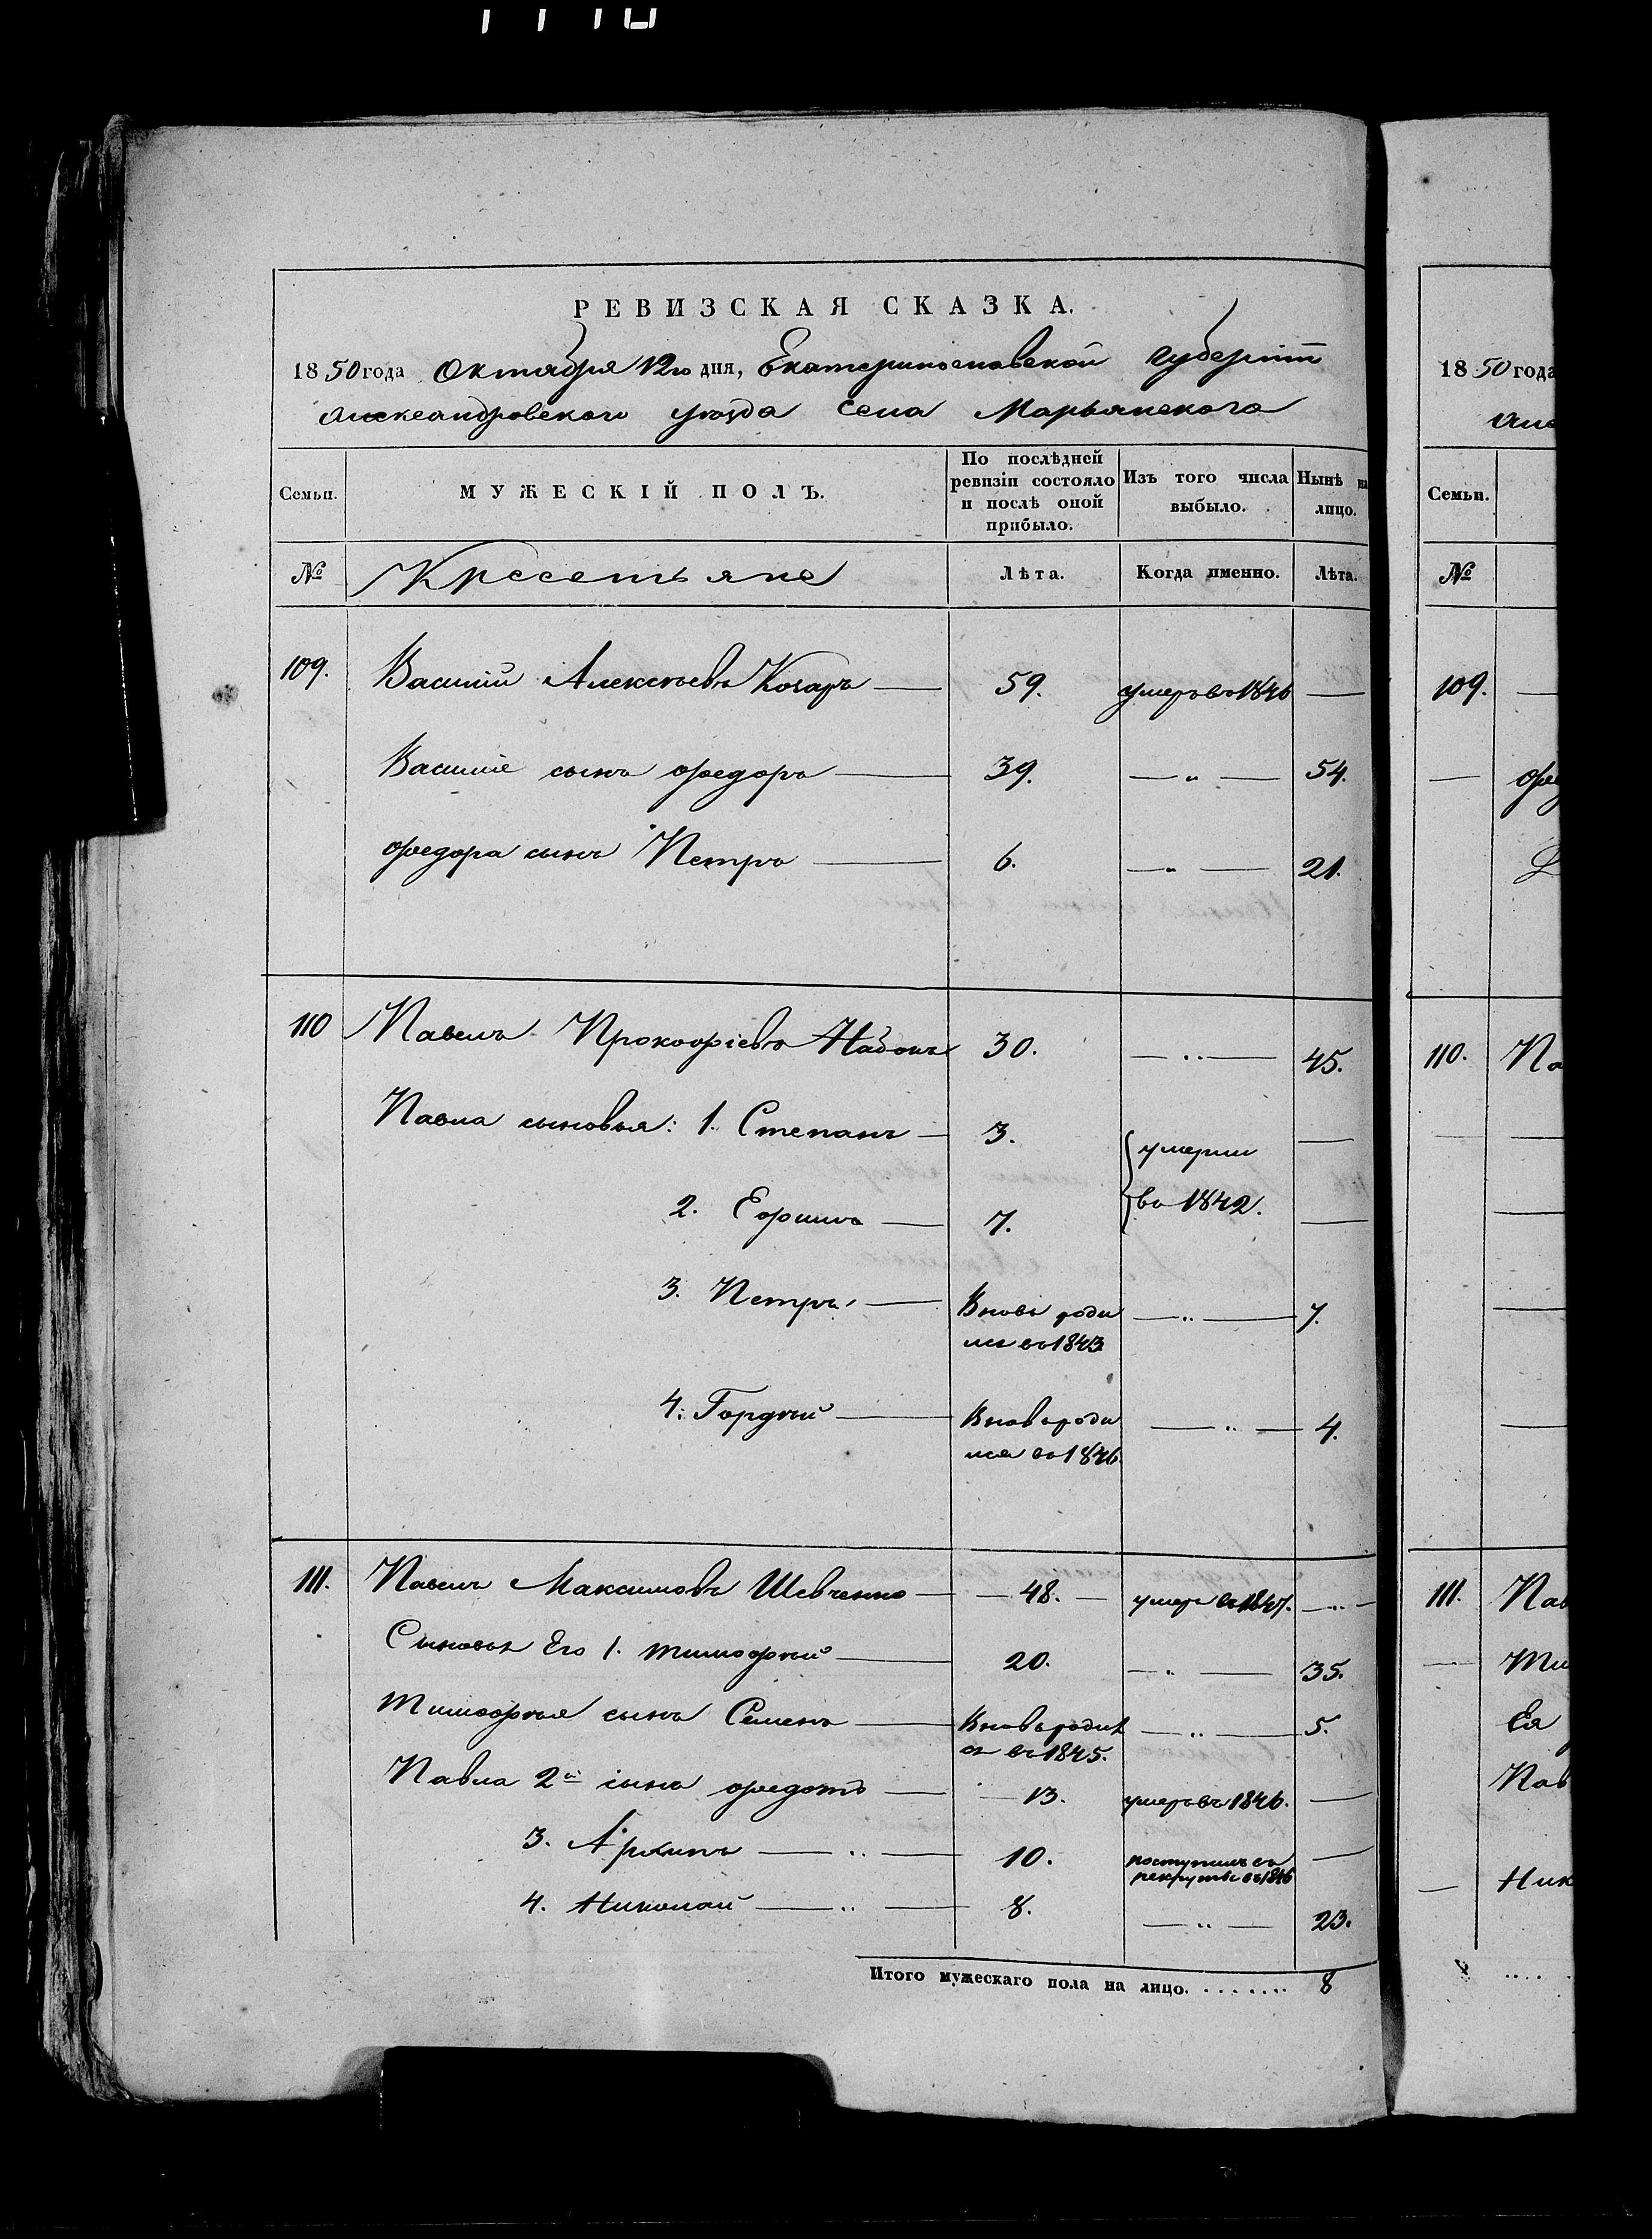 РЕВИЗСКАЯ СКАЗКА.
1850 года Октября 12го дня, Екатеринославской губерніи
Александровского уѣзда Села Марьянского
Семьи. МУЖЕСКІЙ ПОЛЪ. По послѣдней ревизіи состояло и послѣ оной прибыло. Изъ того числа выбыло. Нынѣ на лицо.
№ Крестьяне Лѣта. Когда именно. Лѣта.
109. Василій Алексѣевъ Кочаръ — 59. умеръ въ 1846 —
Василія сынъ Федоръ — 39. — „ — 54.
Федора сынъ Петръ — 6. — „ — 21.
110 Павелъ Прокофіевъ Набокъ 30. — „ — 45.
Павла сыновья: 1. Степанъ — 3. умерли —
2. Ефимъ — 7. въ 1842. —
3. Петръ — Вновь роди — „ — 7.
лся въ 1843
4. Гордѣй — Вновь роди — „ — 4.
лся въ 1846.
111. Павелъ Максимовъ Шевченко — 48. — умеръ въ 1847. — „ —
Сыновья Его 1. Тимофѣй — 20. — „ — 35.
Тимофѣя сынъ Семенъ — Вновь родил — „ — 5.
ся въ 1845.
Павла 2й сынъ Федотъ — 13. умеръ въ 1846. —
3. Архипъ — „ — 10. поступилъ въ —
рекруты въ 1846
4. Николай — „ — 8. — „ — 23.
Итого мужескаго пола на лицо. . . . . . . . 8
1850 года
Але
Семьи.
№
109. —
— Фед
110. Па
111. Пав
— Ти
Ея
Пав
— Ник